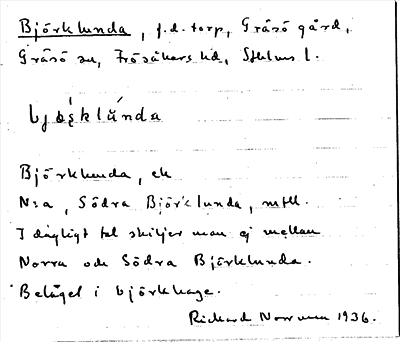 Björklunda, f.d. torp, Gräsö gård,
Gräsö sn, Frösåkers hd, Sthlms l.
bjœ̨́rklùnda
Björklunda, ek
N:a, Södra Björklunda, mtll.
I dagligt tal skiljer man ej mellan
Norra och Södra Björklunda.
Beläget i björkhage.
Richard Norrman 1936.